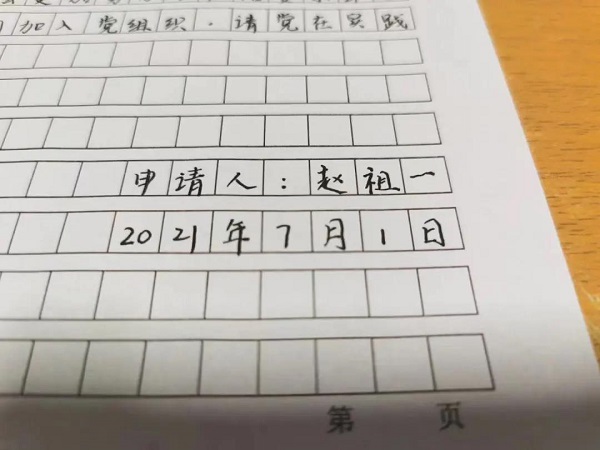 加入党组织.请党在实践
申请人:赵祖一
2021年7月1日
第 页